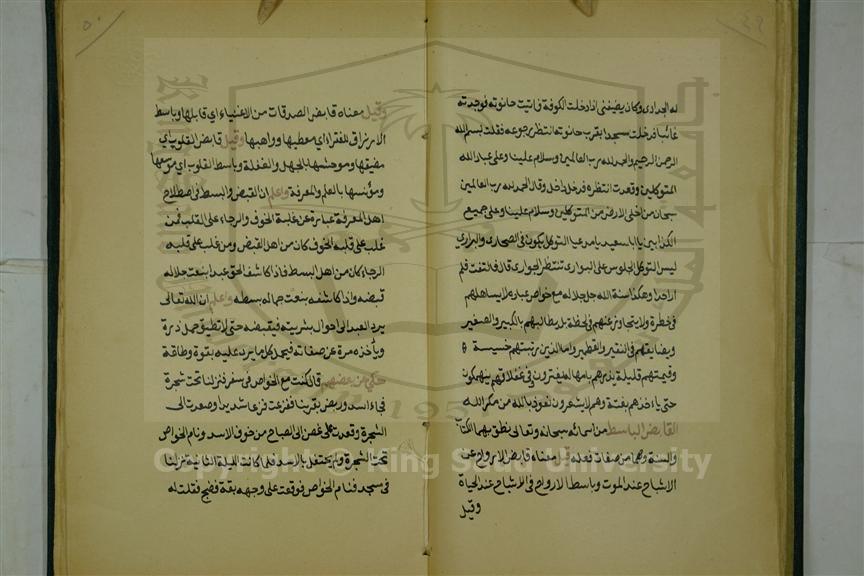 له الجدادى وكان يضيفنى اذا دخلت الكوفة فاتيت حانوته فوجدته
غائبا فدخلت مسجدا بقرب حانوته انتظر رجوعه فقلت بسم الله
الرحمن الرحيم والحمد لله رب العالمين وسلام علينا وعلى عباد الله
المتوكلين وقعدت انتظره فدخل داخل وقال الحمد لله رب العالمين
سبحان من اخلى الارض من المتوكلين وسلام علينا وعلى جميع
الكذابين يا ابا سعيد يا مدعيا التوكل يكون فى الصحارى والبرارى
ليس التوكل الجلوس على البوارى تنتظر الجوارى قال فالتفت فلم
ار احدا وهكذا سنة الله جل جلاله مع خواص عباده لا يساهلهم
فى خطرة ولا يتجاوز عنهم فى لحظة بل يطالبهم بالكبير والصغير
ويضايقهم فى النقير والقطمير واما الذين رتبتهم خسيسة
وقيمتهم قليلة يذرهم بامهاله يغترون فى غفلاتهم ينهمكون
حتى ياخذهم بغتة وهم لا يشعرون نعوذ بالله من مكر الله
القابض الباسط من اسمائه سبحانه وتعالى نطق بهما الكتاب
والسنة وهما من صفات فعله قيل معناه قابض الارواح عن
الاشباح عند الموت وباسط الارواح فى الاشباح عند الحياة
وقيل
وقيل معناه قابض الصدقات من الاغنياء اى قابلها وباسط
الارزاق للفقراء اى معطيها وواهبها وقيل قابض القلوب اى
مضيقها وموحشها بالجهل والغفلة وباسط القلوب اى موسعها
ومؤنسها بالعلم والمعرفة واعلم ان القبض والبسط فى اصطلاح
اهل المعرفة عبارة عن غلبة الخوف والرجاء على القلب فمن
غلب على قلبه الخوف كان من اهل القبض ومن غلب على قلبه
الرجاء كان من اهل البسط فاذا كاشف الحق عبدا بنعت جلاله
قبضه واذا كاشفه بنعت جماله بسطه واعلم ان الله تعالى
يرد العبد الى احوال بشريته فيقبضه حتى لا تطيق حمل ذرة
وياخذه مرة عن صفاته فيحمل كل ما يرد عليه بقوة وطاقة
حكى عن بعضهم قال كنت مع الخواص فى سفر فنزلنا تحت شجرة
فجاء اسد وربض بقربنا ففزعت فزعا شديدا وصعدت الى
الشجرة وقعدت على غصن الى الصباح من خوف الاسد ونام الخواص
تحت الشجرة ولم يحتفل بالاسد فلما كانت الليلة الثانية نزلنا
فى مسجد فنام الخواص فوقعت على وجهه بقة فضج فقلت له
Copyright © King Saud University
1957